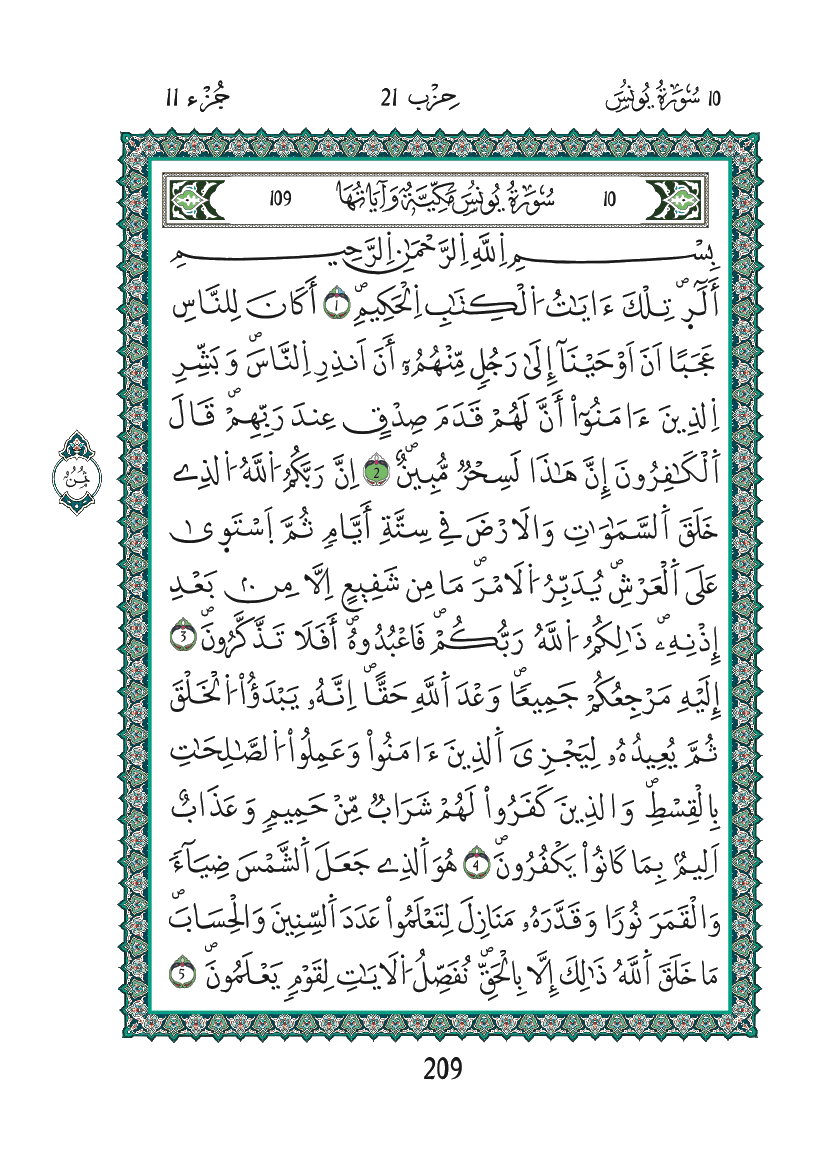 10 سُورَةُ يُونُسَ حِزْب 21 جُزْء 11
10 سُورَةُ يُونُسَ مَكِّيَّةٌ وَآيَاتُهَا 109
بِسْمِ اِ۬للَّهِ اِ۬لرَّحْمَٰنِ اِ۬لرَّحِيمِ
أَلَٓرٌۖ تِلْكَ ءَايَٰتُ اُ۬لْكِتَٰبِ اِ۬لْحَكِيمِۖ 1 أَكَانَ لِلنَّاسِ
عَجَبًا اَنَ اَوْحَيْنَآ إِلَىٰ رَجُلٖ مِّنْهُمُۥٓ أَنَ اَنذِرِ اِ۬لنَّاسَۖ وَبَشِّرِ
اِ۬لذِينَ ءَامَنُوٓاْ أَنَّ لَهُمْ قَدَمَ صِدْقٍ عِندَ رَبِّهِمْۖ قَالَ
اَ۬لْكَٰفِرُونَ إِنَّ هَٰذَا لَسِحْرٞ مُّبِينٌۖ 2 اِنَّ رَبَّكُمُ اُ۬للَّهُ اُ۬لذِے
خَلَقَ اَ۬لسَّمَٰوَٰتِ وَالَارْضَ فِے سِتَّةِ أَيَّامٖ ثُمَّ اَ۪سْتَوَىٰ
عَلَى اَ۬لْعَرْشِۖ يُدَبِّرُ اُ۬لَامْرَۖ مَا مِن شَفِيعٍ اِلَّا مِنۢ بَعْدِ
إِذْنِهِۦۖ ذَٰلِكُمُ اُ۬للَّهُ رَبُّكُمْۖ فَاعْبُدُوهُۖ أَفَلَا تَذَّكَّرُونَۖ 3
إِلَيْهِ مَرْجِعُكُمْ جَمِيعاٗۖ وَعْدَ اَ۬للَّهِ حَقّاًۖ اِنَّهُۥ يَبْدَؤُاْ اُ۬لْخَلْقَ
ثُمَّ يُعِيدُهُۥ لِيَجْزِيَ اَ۬لذِينَ ءَامَنُواْ وَعَمِلُواْ اُ۬لصَّٰلِحَٰتِ
بِالْقِسْطِۖ وَالذِينَ كَفَرُواْ لَهُمْ شَرَابٞ مِّنْ حَمِيمٖ وَعَذَابٌ
اَلِيمُۢ بِمَا كَانُواْ يَكْفُرُونَۖ 4 هُوَ اَ۬لذِے جَعَلَ اَ۬لشَّمْسَ ضِيَآءٗ
وَالْقَمَرَ نُوراٗ وَقَدَّرَهُۥ مَنَازِلَ لِتَعْلَمُواْ عَدَدَ اَ۬لسِّنِينَ وَالْحِسَابَۖ
مَا خَلَقَ اَ۬للَّهُ ذَٰلِكَ إِلَّا بِالْحَقِّۖ نُفَصِّلُ اُ۬لَايَٰتِ لِقَوْمٖ يَعْلَمُونَۖ 5
ثُمُن
209